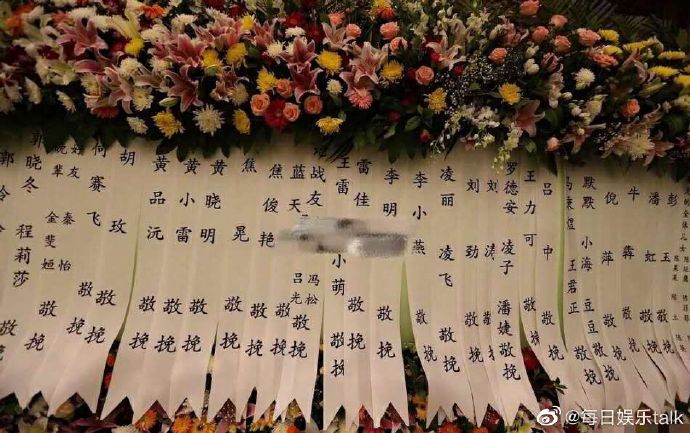 郭晓冬 程莉莎 敬挽
挚友 秦怡
金斐姮
何赛飞 敬挽
胡玫 敬挽
黄品沅 敬挽
黄小雷 敬挽
黄晓明 敬挽
焦晃 敬挽
焦俊艳 敬挽
蓝天 吕光 敬挽
战友 冯松 敬挽
王雷 小萌 敬挽
雷佳 敬挽
李明 敬挽
李小燕 敬挽
凌丽 凌飞 敬挽
刘劲 敬挽
刘涛 敬挽
罗德安 凌子 潘婕敬挽
王力可 敬挽
吕中 敬挽
马秉煜 王君正 敬挽
默默 小海 豆豆 敬挽
倪萍 敬挽
牛犇 敬挽
潘虹 敬挽
彭玉 敬挽
@每日娱乐talk